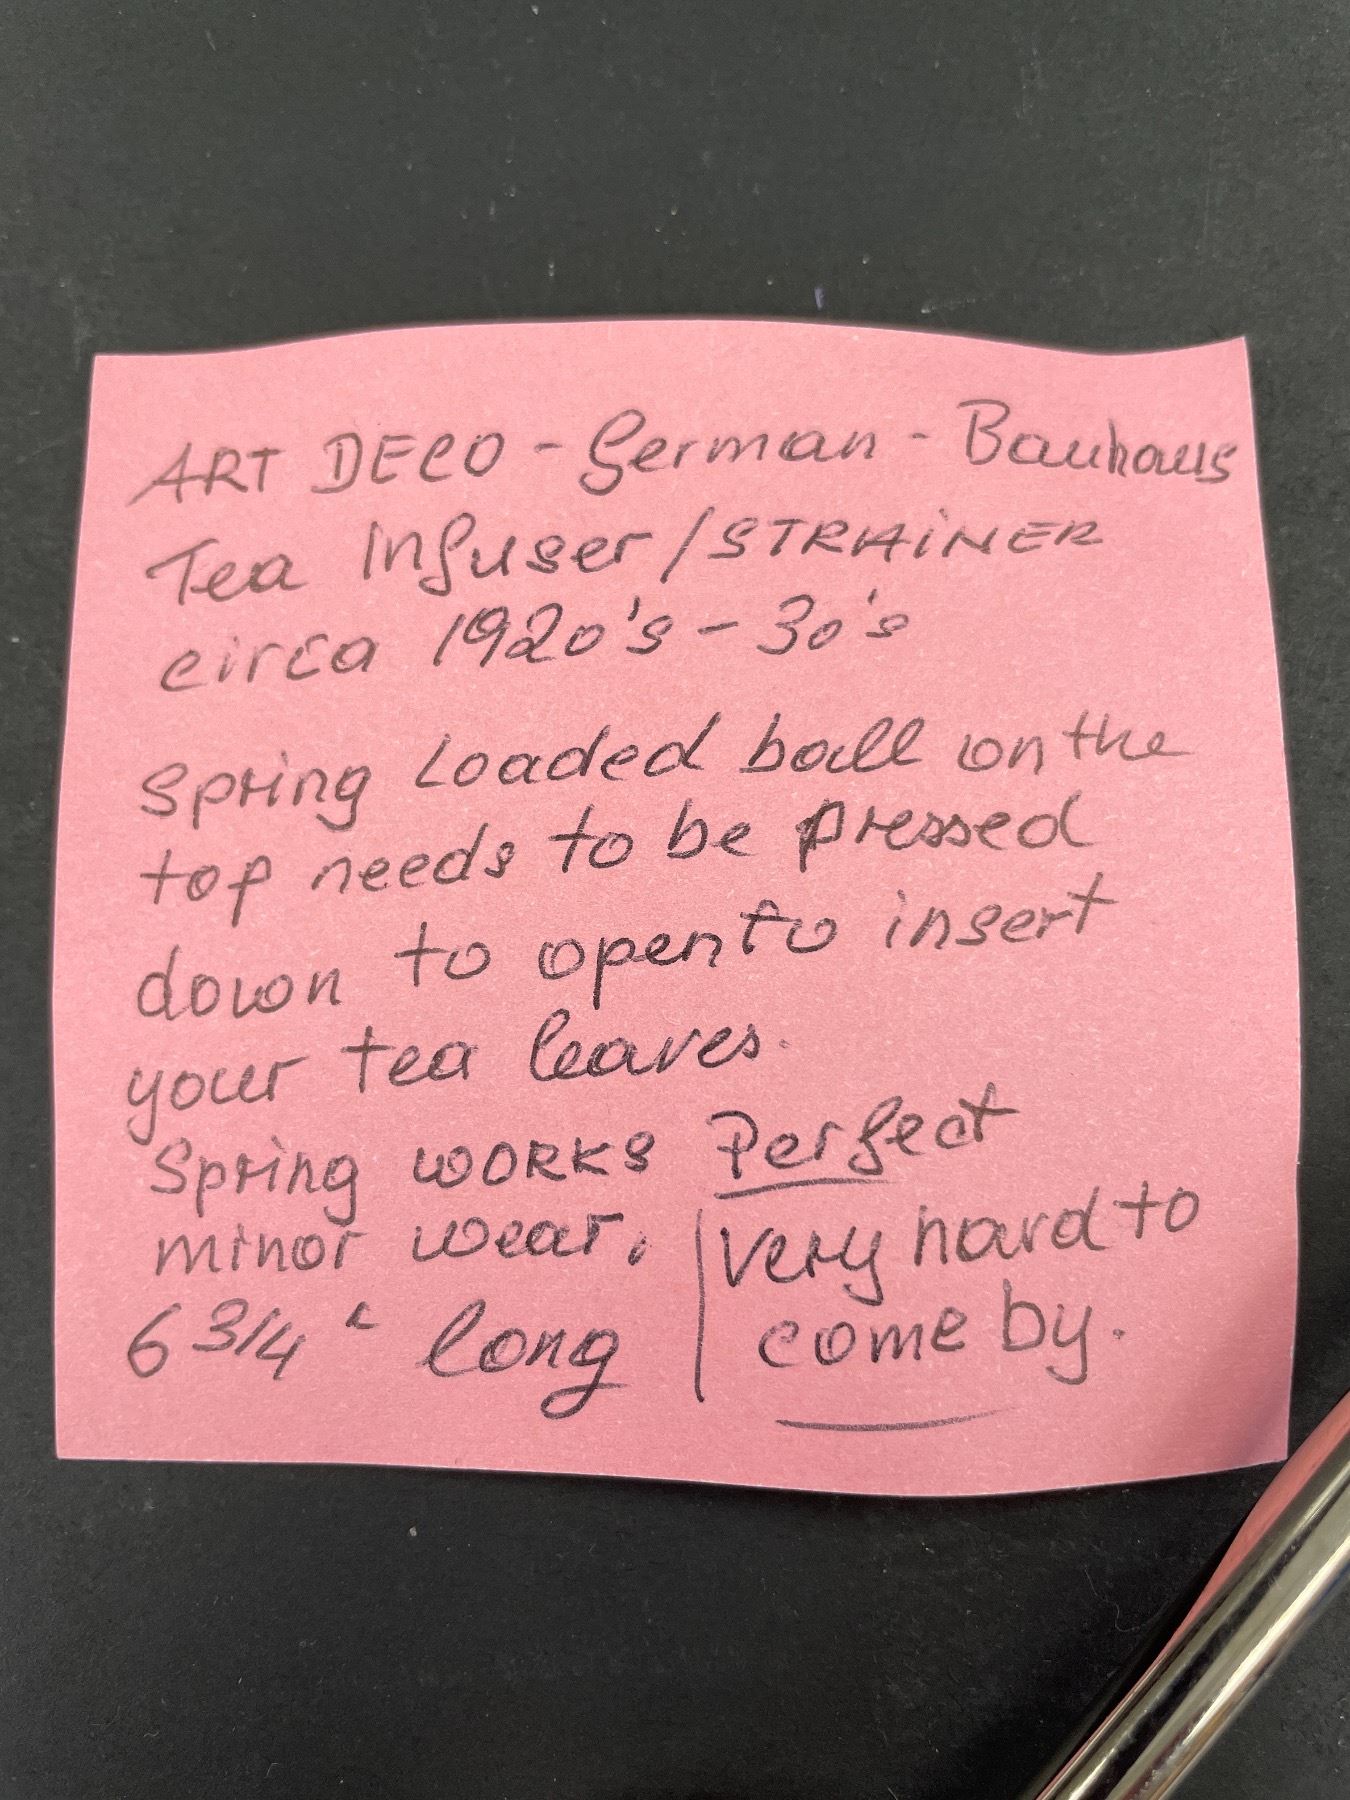 ART DECO - German - Bauhaus
Tea Infuser / STRAiNER
circa 1920's - 30's
Spring Loaded ball on the
top needs to be pressed
down to open to insert
your tea leaves.
Spring WORKS Perfect
minor wear.
6 3/4" long
very hard to
come by.